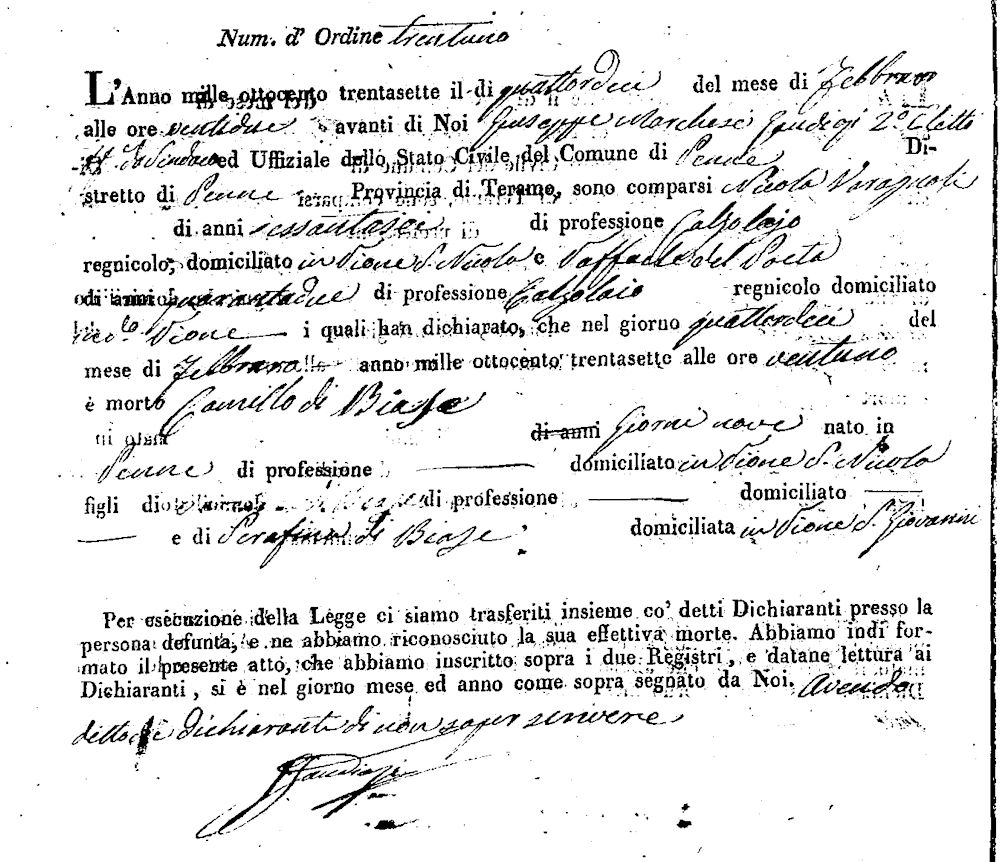 Num. d' Ordine trentuno
L'Anno mille ottocento trentasette il di quattordeci del mese di Febbraro
alle ore ventidue avanti di Noi Giuseppe Marchese 2º Eletto
ed Uffiziale dello Stato Civile del Comune di Penne Di-
stretto di Penne Provincia di Teramo, sono comparsi Nicola
di anni sessantasei di professione Calzolajo
regnicolo, domiciliato in Rione S. Nicola e Raffaele del Poeta
di anni quarantadue di professione Calzolaio regnicolo domiciliato
Rione i quali han dichiarato, che nel giorno quattordeci del
mese di Febbraro anno mille ottocento trentasette alle ore ventuno
è morto Camillo di Biase
di anni Giorni nove nato in
Penne di professione domiciliato in Rione S. Nicola
figli di di professione domiciliato
e di Serafina di Biase domiciliata in Rione S. Giovanni
Per esecuzione della Legge ci siamo trasferiti insieme co' detti Dichiaranti presso la
persona defunta, e ne abbiamo riconosciuto la sua effettiva morte. Abbiamo indi for-
mato il presente atto, che abbiamo inscritto sopra i due Registri, e datane lettura ai
Dichiaranti, si è nel giorno mese ed anno come sopra segnato da Noi. avendo
detto dichiaranti di non saper scrivere